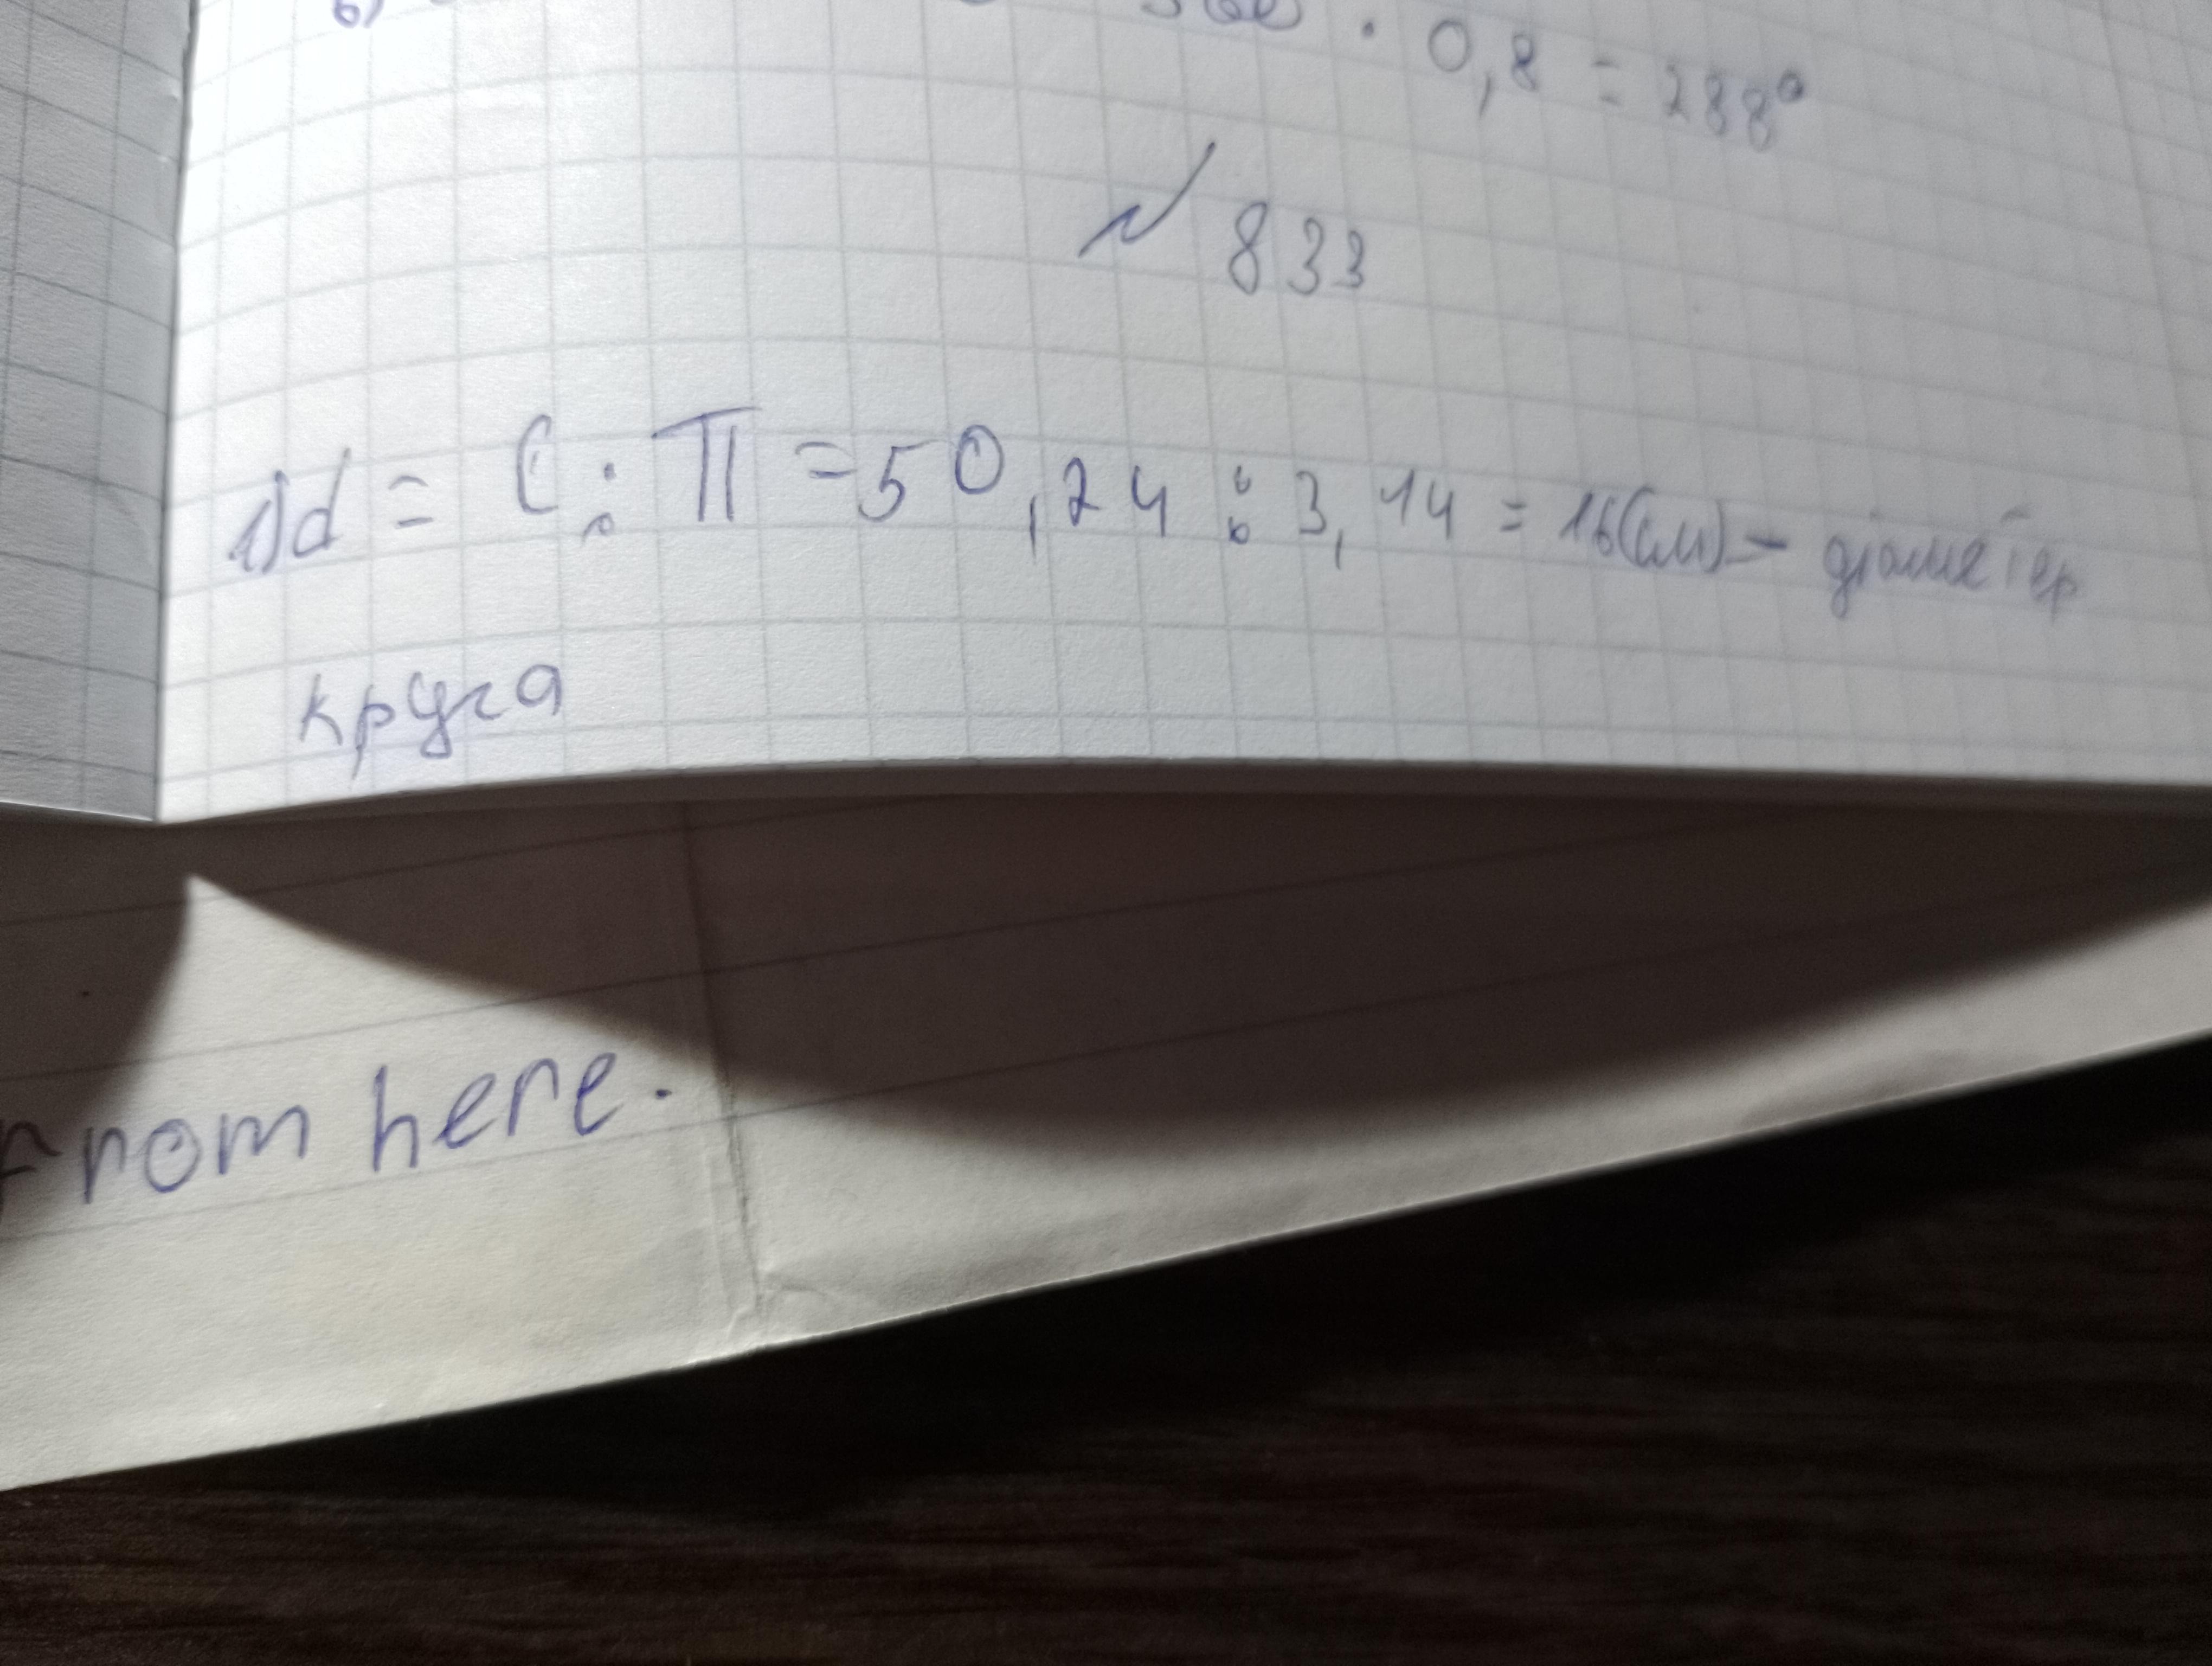 б)
360 · 0,8 = 288°
№ 833
1) d = C : π = 50,24 : 3,14 = 16(см) – діаметер
круга
from here.